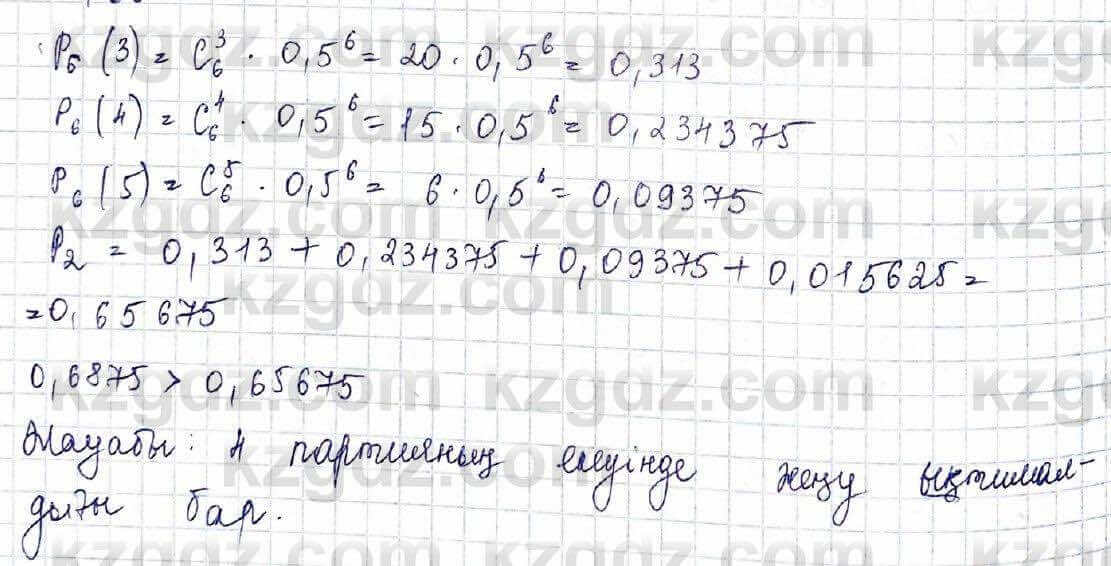 P₆(3) = C₆³ · 0,5⁶ = 20 · 0,5⁶ = 0,313
P₆(4) = C₆⁴ · 0,5⁶ = 15 · 0,5⁶ = 0,234375
P₆(5) = C₆⁵ · 0,5⁶ = 6 · 0,5⁶ = 0,09375
P₂ = 0,313 + 0,234375 + 0,09375 + 0,015625 =
= 0,65675
0,6875 > 0,65675
Жауабы: 4 партияның екеуінде жеңу ықтимал-
дығы бар.